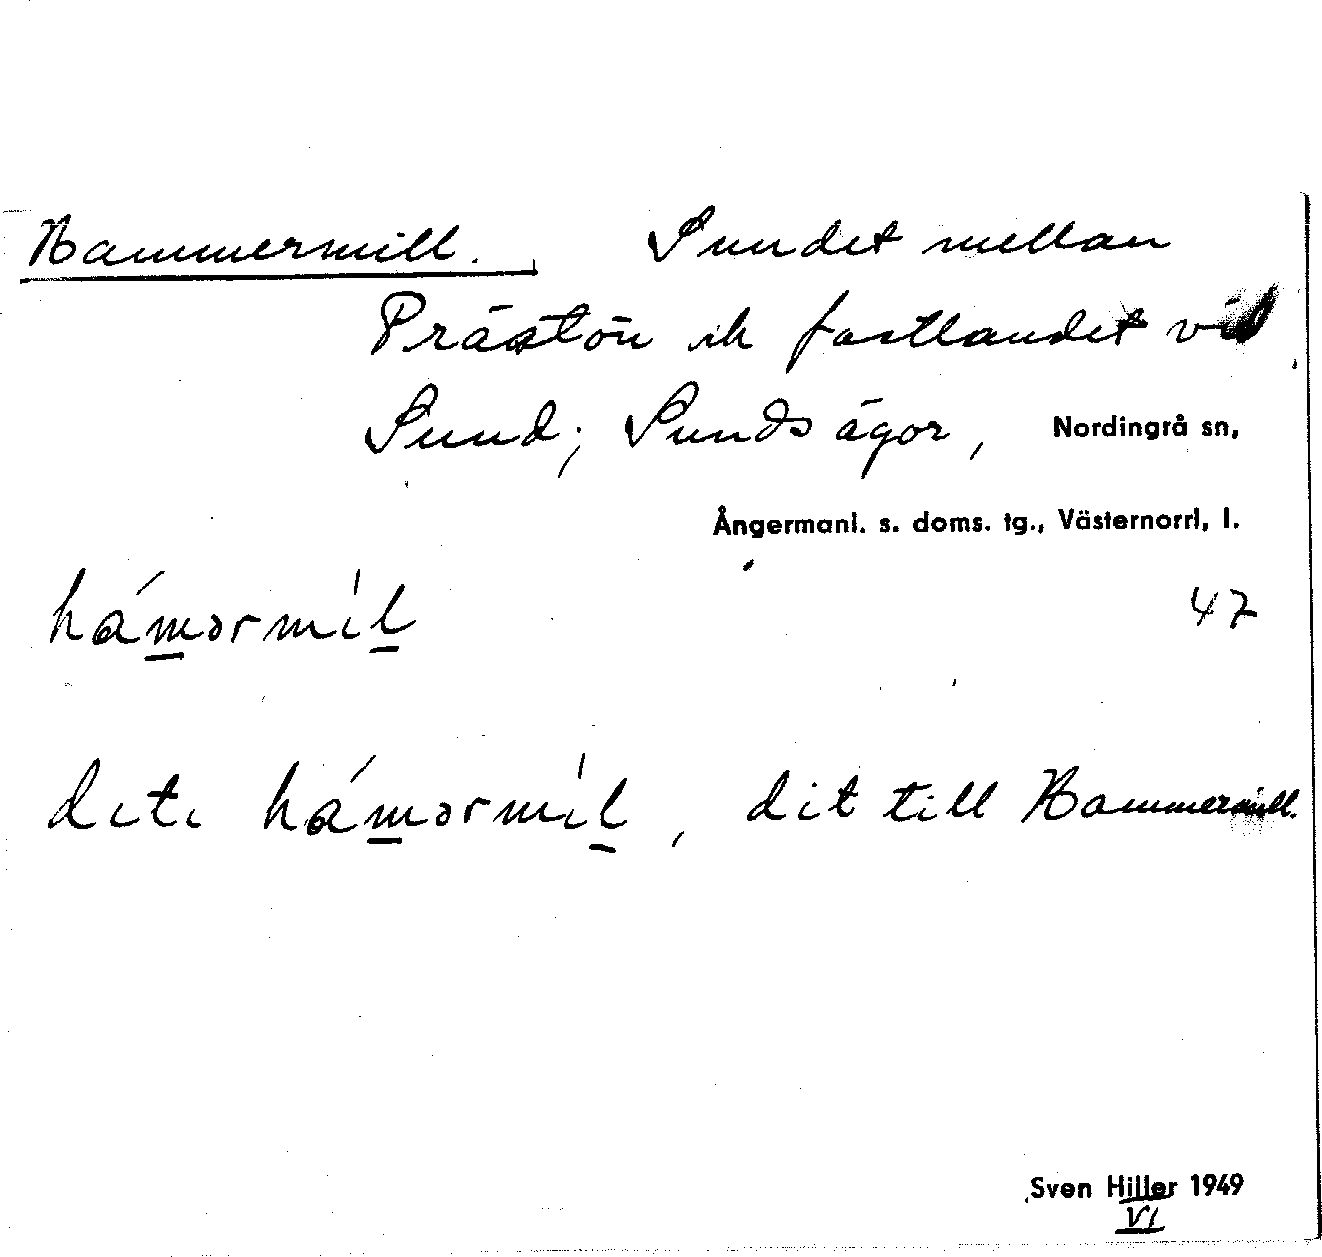 Hammermill. Sundet mellan
Prästön ch fastlandet vid
Sund; Sunds ägor, Nordingrå sn,
Ångermanl. s. doms. tg., Västernorrl, l.
hámərmíl 47
dɩtɩ hámərmíl, dit till Hammermill.
Sven Hiller 1949
VI